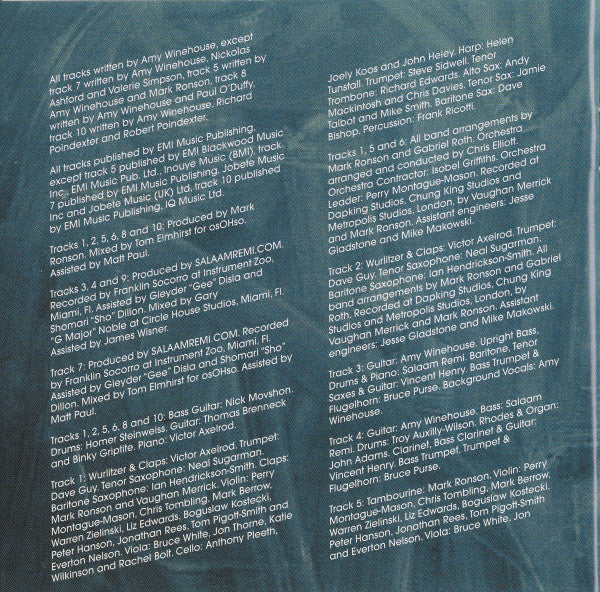 All tracks written by Amy Winehouse, except
track 7 written by Amy Winehouse, Nickolas
Ashford and Valerie Simpson, track 5 written by
Amy Winehouse and Mark Ronson, track 8
written by Amy Winehouse and Paul O'Duffy,
track 10 written by Amy Winehouse, Richard
Poindexter and Robert Poindexter.
All tracks published by EMI Music Publishing,
except track 5 published by EMI Blackwood Music
Inc., EMI Music Pub. Ltd., Inouye Music (BMI), track
7 published by EMI Music Publishing, Jobete Music
Inc and Jobete Music (UK) Ltd, track 10 published
by EMI Music Publishing, IQ Music Ltd.
Tracks 1, 2, 5, 6, 8 and 10: Produced by Mark
Ronson. Mixed by Tom Elmhirst for osOHso.
Assisted by Matt Paul.
Tracks 3, 4 and 9: Produced by SALAAMREMI.COM.
Recorded by Franklin Socorro at Instrument Zoo,
Miami, Fl. Assisted by Gleyder "Gee" Disla and
Shomari "Sho" Dillon. Mixed by Gary
"G Major" Noble at Circle House Studios, Miami, Fl.
Assisted by James Wisner.
Track 7: Produced by SALAAMREMI.COM. Recorded
by Franklin Socorro at Instrument Zoo, Miami, Fl.
Assisted by Gleyder "Gee" Disla and Shomari "Sho"
Dillon. Mixed by Tom Elmhirst for osOHso. Assisted by
Matt Paul.
Tracks 1, 2, 5, 6, 8 and 10: Bass Guitar: Nick Movshon.
Drums: Homer Steinweiss. Guitar: Thomas Brenneck
and Binky Griptite. Piano: Victor Axelrod.
Track 1: Wurlitzer & Claps: Victor Axelrod. Trumpet:
Dave Guy. Tenor Saxophone: Neal Sugarman.
Baritone Saxophone: Ian Hendrickson-Smith. Claps:
Mark Ronson and Vaughan Merrick. Violin: Perry
Montague-Mason, Chris Tombling, Mark Berrow,
Warren Zielinski, Liz Edwards, Boguslaw Kostecki,
Peter Hanson, Jonathan Rees, Tom Pigott-Smith and
Everton Nelson. Viola: Bruce White, Jon Thorne, Katie
Wilkinson and Rachel Bolt. Cello: Anthony Pleeth,
Joely Koos and John Heley. Harp: Helen
Tunstall. Trumpet: Steve Sidwell. Tenor
Trombone: Richard Edwards. Alto Sax: Andy
Mackintosh and Chris Davies. Tenor Sax: Jamie
Talbot and Mike Smith. Baritone Sax: Dave
Bishop. Percussion: Frank Ricotti.
Tracks 1, 5 and 6: All band arrangements by
Mark Ronson and Gabriel Roth. Orchestra
arranged and conducted by Chris Elliott.
Orchestra Contractor: Isobel Griffiths. Orchestra
Leader: Perry Montague-Mason. Recorded at
Dapking Studios, Chung King Studios and
Metropolis Studios, London, by Vaughan Merrick
and Mark Ronson. Assistant engineers: Jesse
Gladstone and Mike Makowski.
Track 2: Wurlitzer & Claps: Victor Axelrod. Trumpet:
Dave Guy. Tenor Saxophone: Neal Sugarman.
Baritone Saxophone: Ian Hendrickson-Smith. All
band arrangements by Mark Ronson and Gabriel
Roth. Recorded at Dapking Studios, Chung King
Studios and Metropolis Studios, London, by
Vaughan Merrick and Mark Ronson. Assistant
engineers: Jesse Gladstone and Mike Makowski.
Track 3: Guitar: Amy Winehouse. Upright Bass,
Drums & Piano: Salaam Remi. Baritone, Tenor
Saxes & Guitar: Vincent Henry. Bass Trumpet &
Flugelhorn: Bruce Purse. Background Vocals: Amy
Winehouse.
Track 4: Guitar: Amy Winehouse. Bass: Salaam
Remi. Drums: Troy Auxilly-Wilson. Rhodes & Organ:
John Adams. Clarinet, Bass Clarinet & Guitar:
Vincent Henry. Bass Trumpet, Trumpet &
Flugelhorn: Bruce Purse.
Track 5: Tambourine: Mark Ronson. Violin: Perry
Montague-Mason, Chris Tombling, Mark Berrow,
Warren Zielinski, Liz Edwards, Boguslaw Kostecki,
Peter Hanson, Jonathan Rees, Tom Pigott-Smith
and Everton Nelson. Viola: Bruce White, Jon